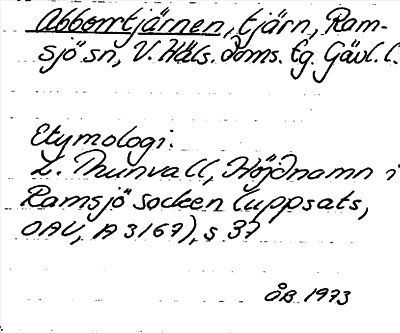 Abborrtjärnen, tjärn, Ram-
sjö sn, V. Häls. doms. Eg. Gävl. l.
Etymologi.
L. Thunvall, Höjdnamn i
Ramsjö socken (uppsats,
OAU, A 3167), s 37
ÅB 1973